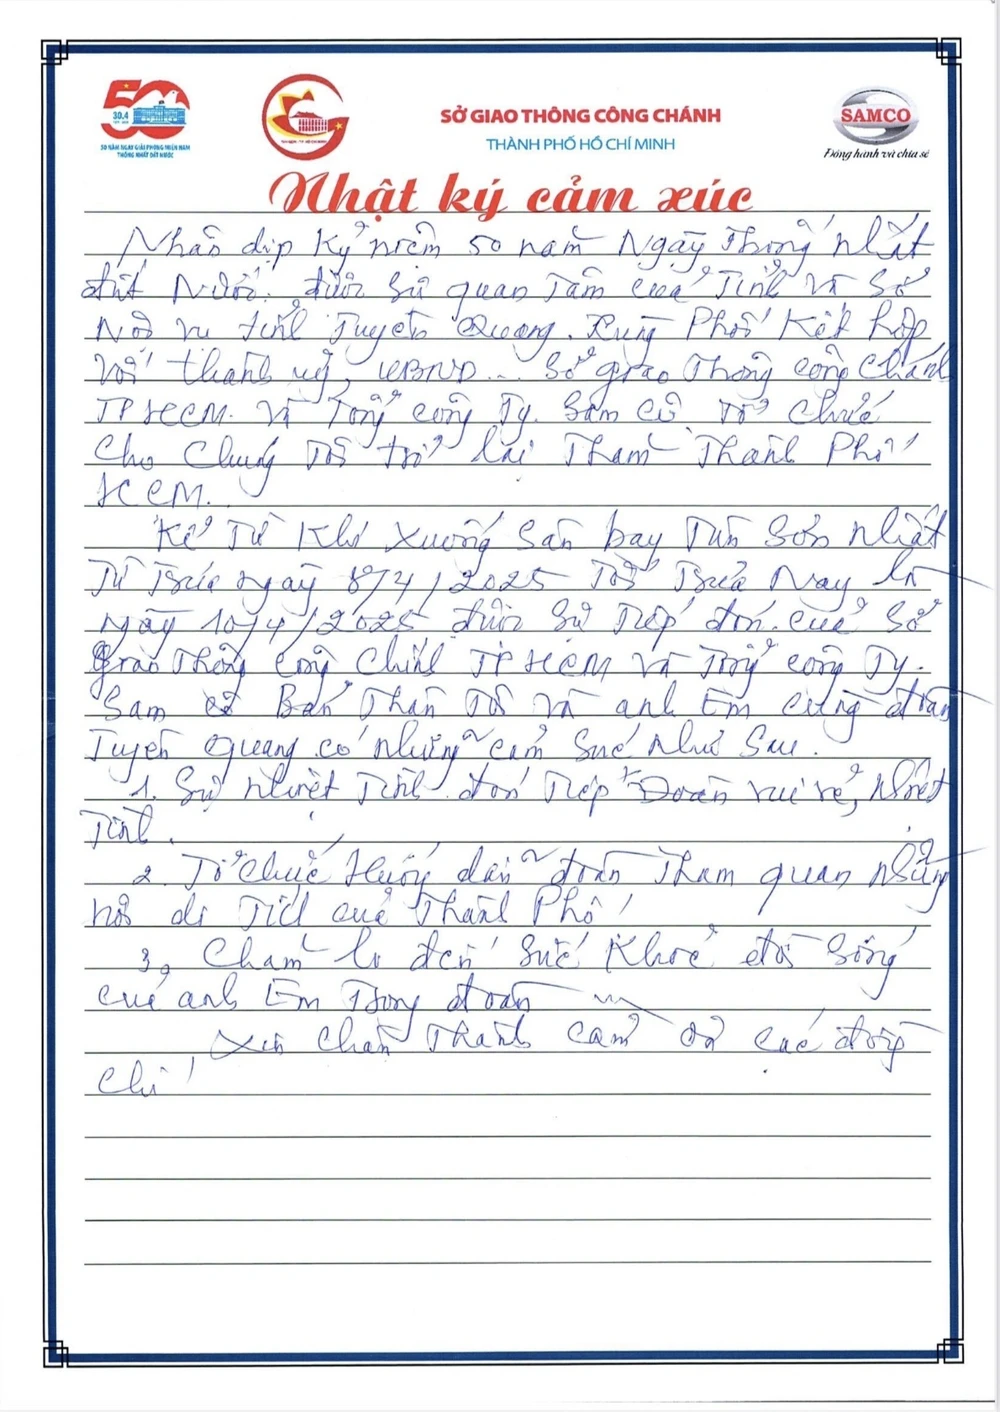 50
30.4
50 NĂM NGÀY GIẢI PHÓNG MIỀN NAM
THỐNG NHẤT ĐẤT NƯỚC
SỞ GIAO THÔNG CÔNG CHÁNH
THÀNH PHỐ HỒ CHÍ MINH
SAMCO
Đồng hành và chia sẻ
Nhật ký cảm xúc
Nhân dịp Kỷ niệm 50 năm Ngày Thống nhất
đất Nước. được Sự quan Tâm của Tỉnh và Sở
Nội vụ tỉnh Tuyên Quang. Phối Kết hợp
với thành uỷ, UBND... Sở giao Thông công Chánh
TP HCM. và Tổng công Ty. Sam Cô Tổ chức
Cho Chúng Tôi trở lại Thăm Thành Phố
HCM.
Kể Từ Khi Xuống Sân bay Tân Sơn Nhất
Từ Trưa ngày 8/4/2025 Tới Trưa Nay là
ngày 10/4/2025 được Sự Tiếp đón. của Sở
giao Thông công Chính TP HCM và Tổng công Ty.
Sam cô Bản Thân Tôi và anh Em cùng đoàn
Tuyên Quang có những cảm Súc Như Sau.
1. Sự Nhiệt Tình đón Tiếp Đoàn vui vẻ, Nhiệt
Tình.
2. Tổ chức Hướng dẫn đoàn Tham quan những
nơi di Tích của Thành Phố
3, Chăm lo đến Sức Khoẻ đời Sống
của anh Em Trong đoàn
Xin Chân Thành cảm ơn các đồng
Chí!